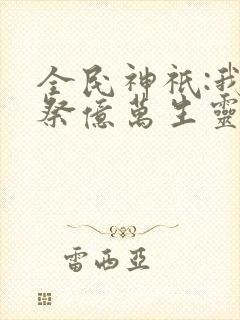 全民神祇:我
祭億萬生靈
雷西亞